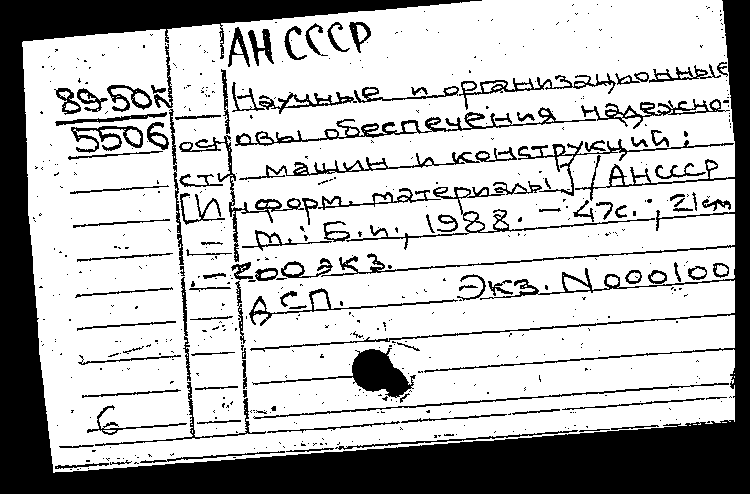 АН СССР
89-50К
5506
Научные и организационные
основы обеспечения надежно-
сти машин и конструкций:
[Информ. материалы] / АНСССР
м.: Б.и., 1988. - 47с.; 21см
- 200 экз.
ДСП. Экз. N 000100
6